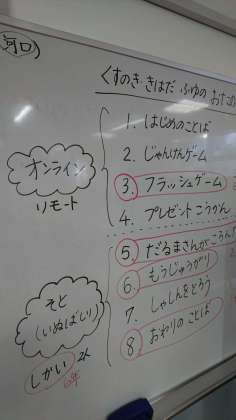 くすのき きはだ ふゆの おたの
1. はじめのことば
2. じゃんけんゲーム
3. フラッシュゲーム
4. プレゼントこうかん
オンライン
リモート
5. だるまさんがころん
6. もうじゅうがり
7. しゃしんをとろう
8. おわりのことば
そと
(いぬばしり)
しかい 2人
6年